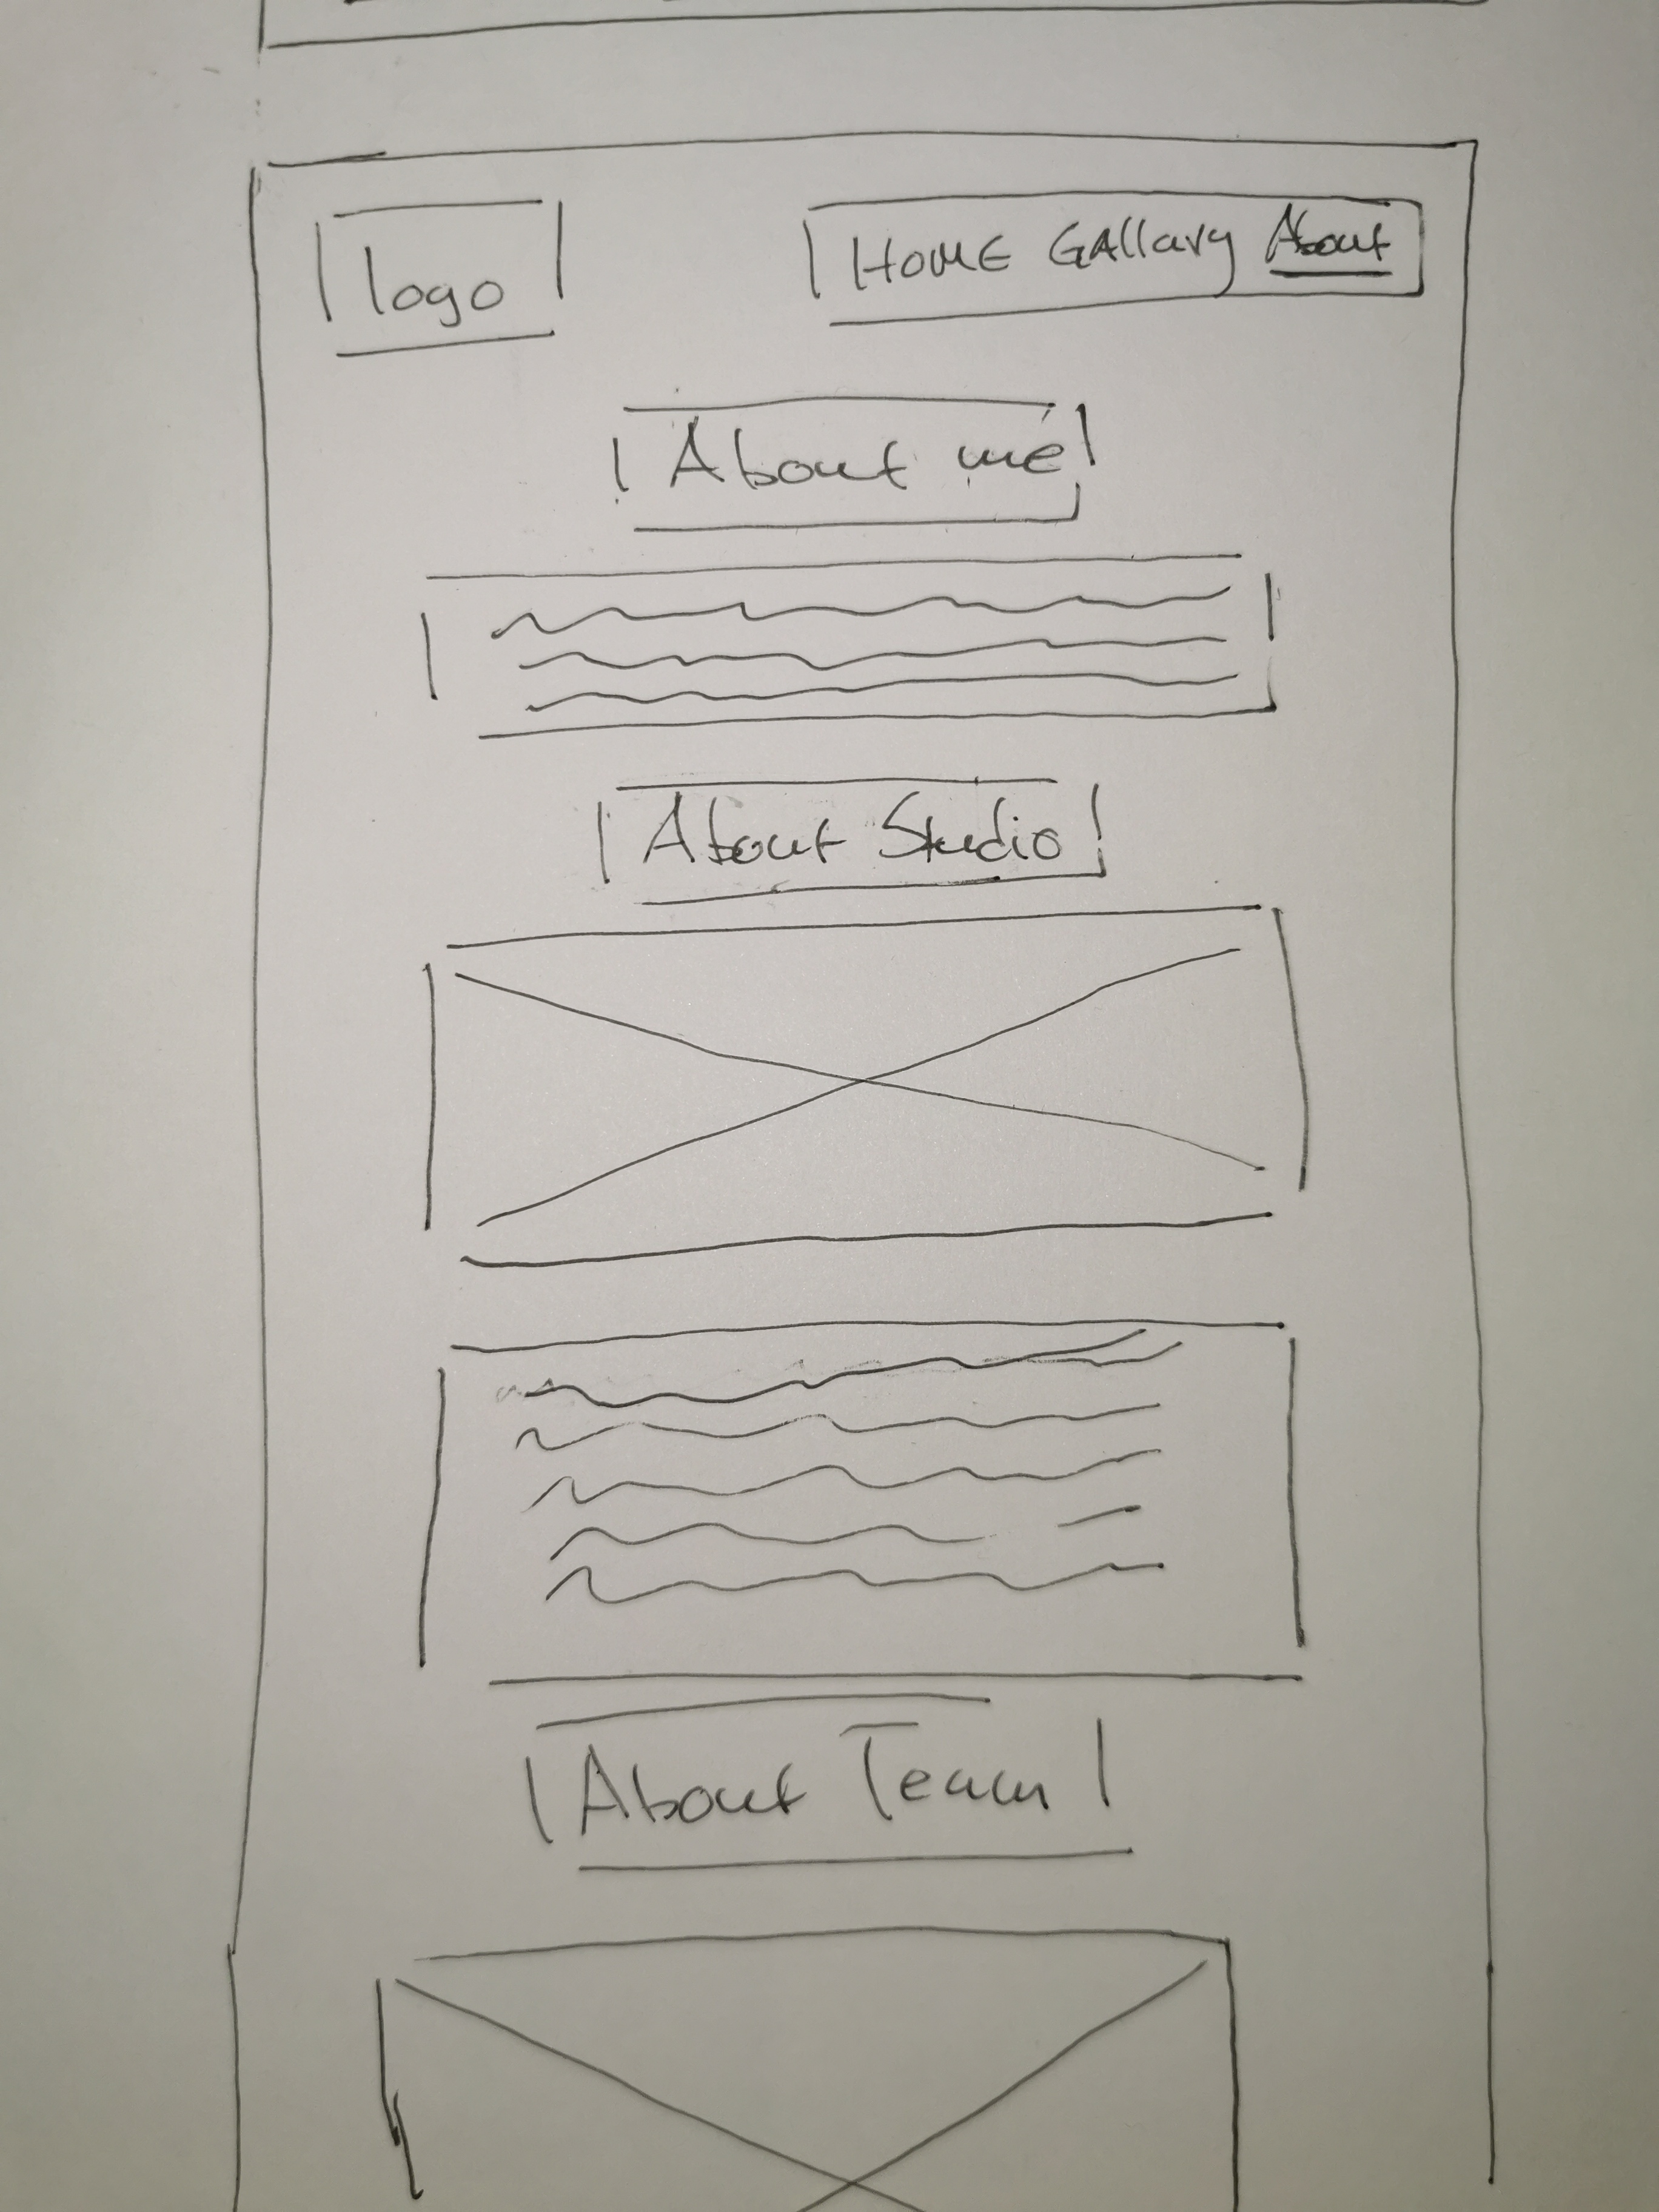 logo
HOME GAllary About
About me
About Studio
About Team